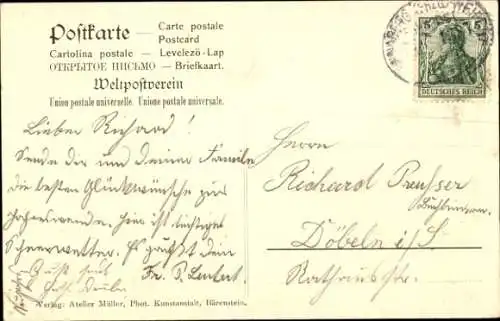 Postkarte — Carte postale
Postcard
Cartolina postale — Levelező-Lap
ОТКРЫТОЕ ПИСЬМО — Briefkaart.
Weltpostverein
Union postale universelle. Unione postale universale.
5 5
DEUTSCHES REICH
Lieber Richard!
Sende dir und deiner Familie
die besten Glückwünsche zur
Jahreswende. Hier ist richtiges
Schneewetter. Es grüßt dein
Fr. P.
Herrn
Richard Preußer
Döbeln i/S.
Rathausstr.
Verlag: Atelier Müller, Phot. Kunstanstalt, Bärenstein.